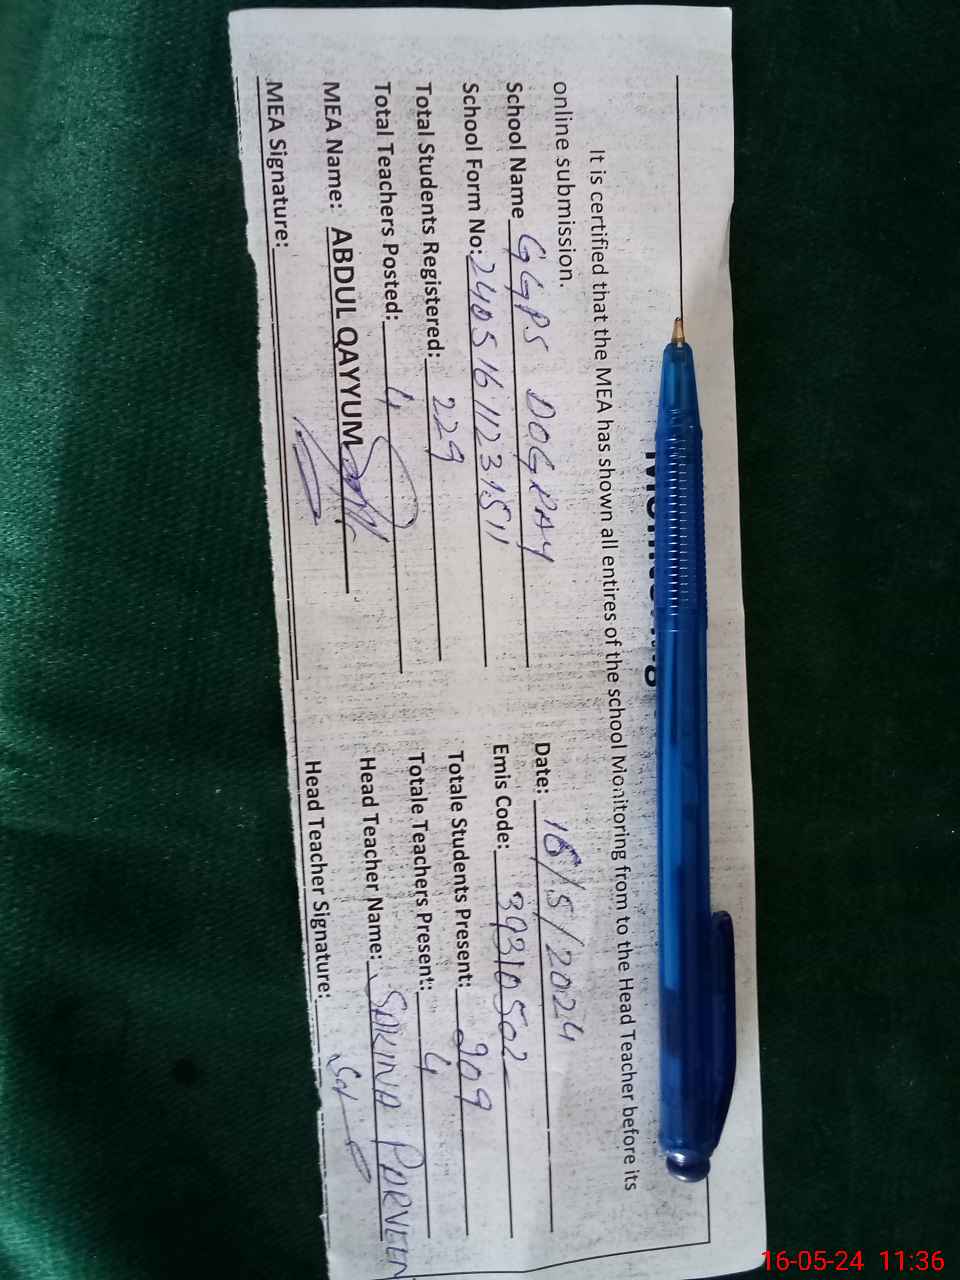 It is certified that the MEA has shown all entires of the school Monitoring from to the Head Teacher before its
online submission.
Date: 16/5/2024
School Name GGPS DOGRAY
Emis Code: 39310502
School Form No: 24051611231511
Totale Students Present: 209
Total Students Registered: 229
Totale Teachers Present: 4
Total Teachers Posted: 4
Head Teacher Name: SAKINA PARVEEN
MEA Name: ABDUL QAYYUM
Head Teacher Signature:
MEA Signature:
16-05-24 11:36